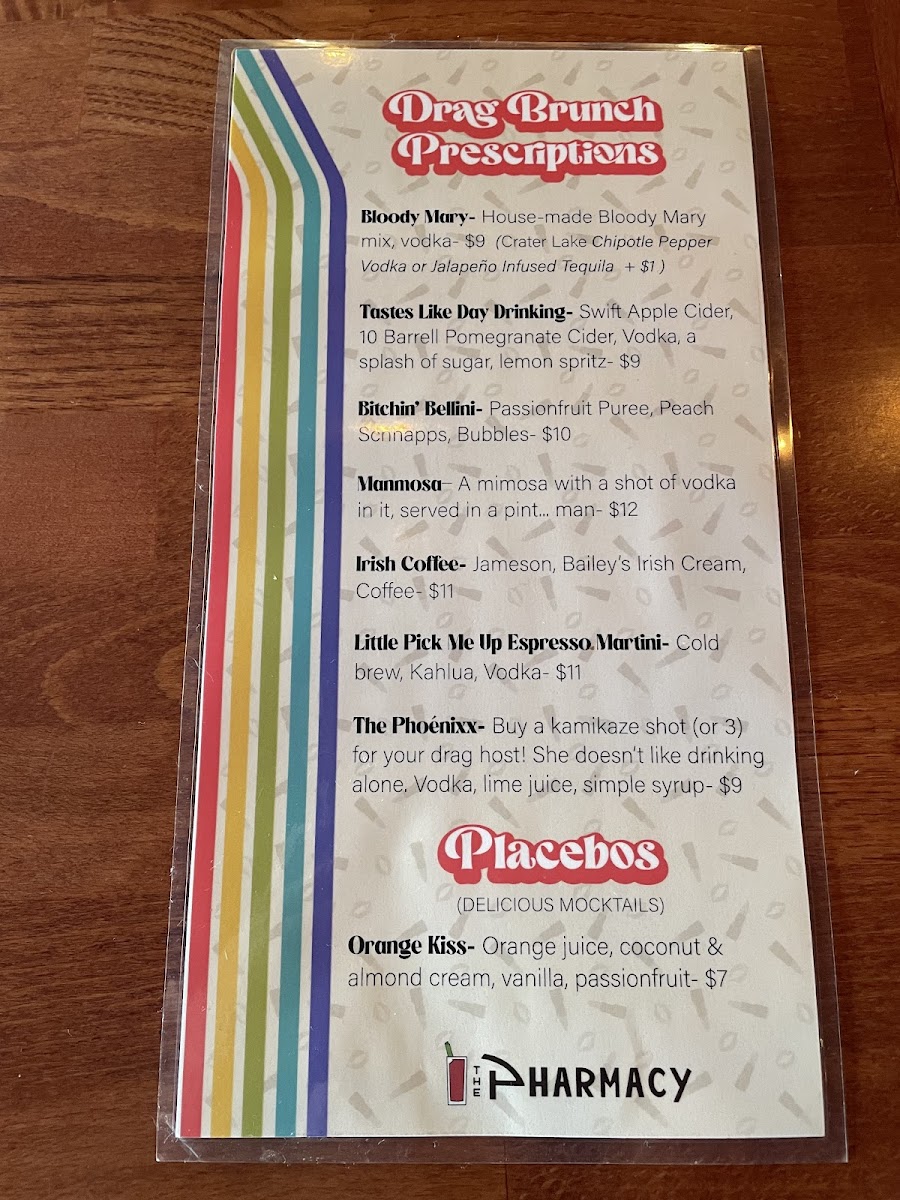 Drag Brunch
Prescriptions
Bloody Mary- House-made Bloody Mary
mix, vodka- $9 (Crater Lake Chipotle Pepper
Vodka or Jalapeño Infused Tequila + $1 )
Tastes Like Day Drinking- Swift Apple Cider,
10 Barrell Pomegranate Cider, Vodka, a
splash of sugar, lemon spritz- $9
Bitchin' Bellini- Passionfruit Puree, Peach
Schnapps, Bubbles- $10
Manmosa- A mimosa with a shot of vodka
in it, served in a pint... man- $12
Irish Coffee- Jameson, Bailey's Irish Cream,
Coffee- $11
Little Pick Me Up Espresso Martini- Cold
brew, Kahlua, Vodka- $11
The Phoénixx- Buy a kamikaze shot (or 3)
for your drag host! She doesn't like drinking
alone. Vodka, lime juice, simple syrup- $9
Placebos
(DELICIOUS MOCKTAILS)
Orange Kiss- Orange juice, coconut &
almond cream, vanilla, passionfruit- $7
THE PHARMACY